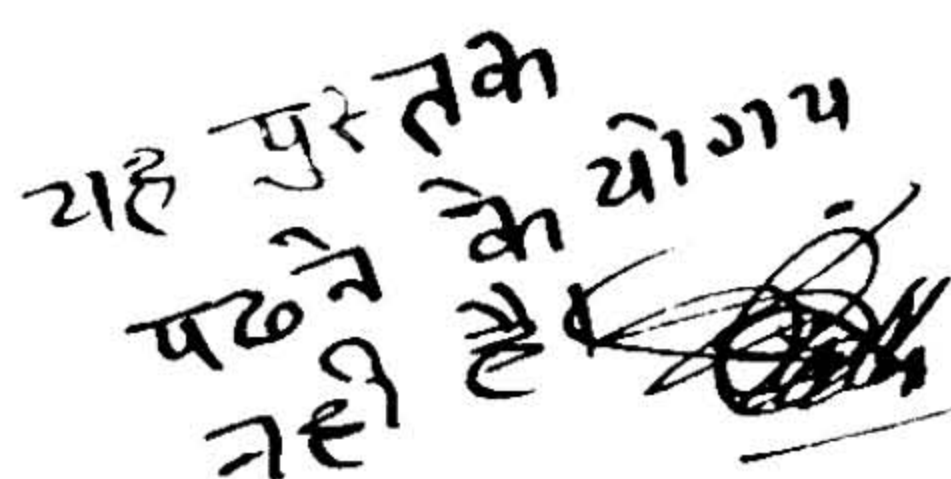 यह पुस्तक
पढने के योगय
नही है